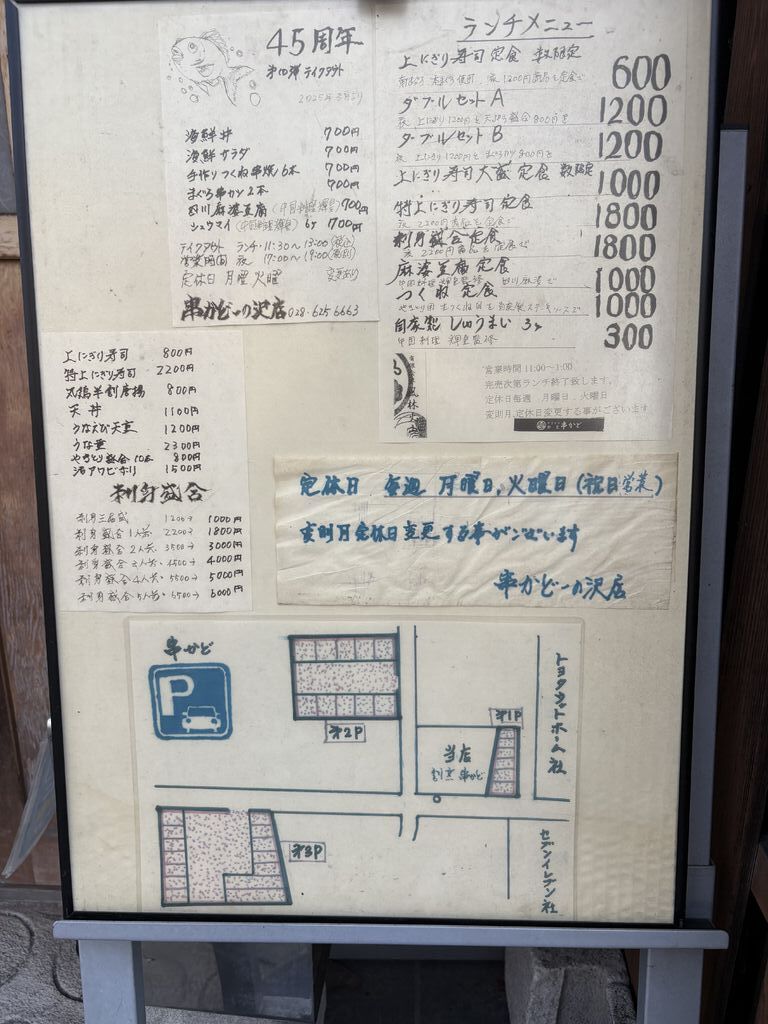 45周年
第10弾テイクアウト
2025年3月より
海鮮丼 700円
海鮮サラダ 700円
手作りつくね串焼6本 700円
まぐろ串かつ2本 700円
四川麻婆豆腐(中国料理 監修) 700円
シュウマイ(中国料理 監修) 6ケ 700円
テイクアウト ランチ・11:30〜13:00(税込)
営業時間 夜 17:00〜19:00
定休日 月曜火曜 変更あり
串かど一の沢店 028-625-6663
ランチメニュー
上にぎり寿司定食 数限定 600
ダブルセットA 1200
夜 上にぎり1200円と天ぷら盛合800円を
ダブルセットB 1200
夜 上にぎり1200円と まぐろかつ800円を
上にぎり寿司大盛定食 数限定 1000
特上にぎり寿司定食 1800
夜 2200円商品を定食で
刺身盛合定食 1800
夜 2200円商品を定食で
麻婆豆腐定食 1000
つくね定食 1000
自家製 しゅうまい 3ケ 300
営業時間 11:00〜1:00
完売次第ランチ終了致します。
定休日毎週、月曜日、火曜日
変則月、定休日変更する事がございます
串かど
上にぎり寿司 800円
特上にぎり寿司 2200円
800円
天丼 1100円
うなえび天重 1200円
うな重 2300円
やきとり盛合10本 800円
活アワビにぎり 1500円
刺身盛合
刺身三点盛 1200→ 1000円
刺身盛合1人前 2200→ 1800円
刺身盛合2人前 3500→ 3000円
刺身盛合3人前・4500→ 4000円
刺身盛合4人前・5500→ 5000円
刺身盛合5人前・6500→ 6000円
定休日 毎週 月曜日,火曜日(祝日営業)
変則月定休日変更する事がございます
串かど一の沢店
串かど
P
第2P
第1P
当店
割烹 串かど
トヨタウッドホーム社
第3P
セブンイレブン社